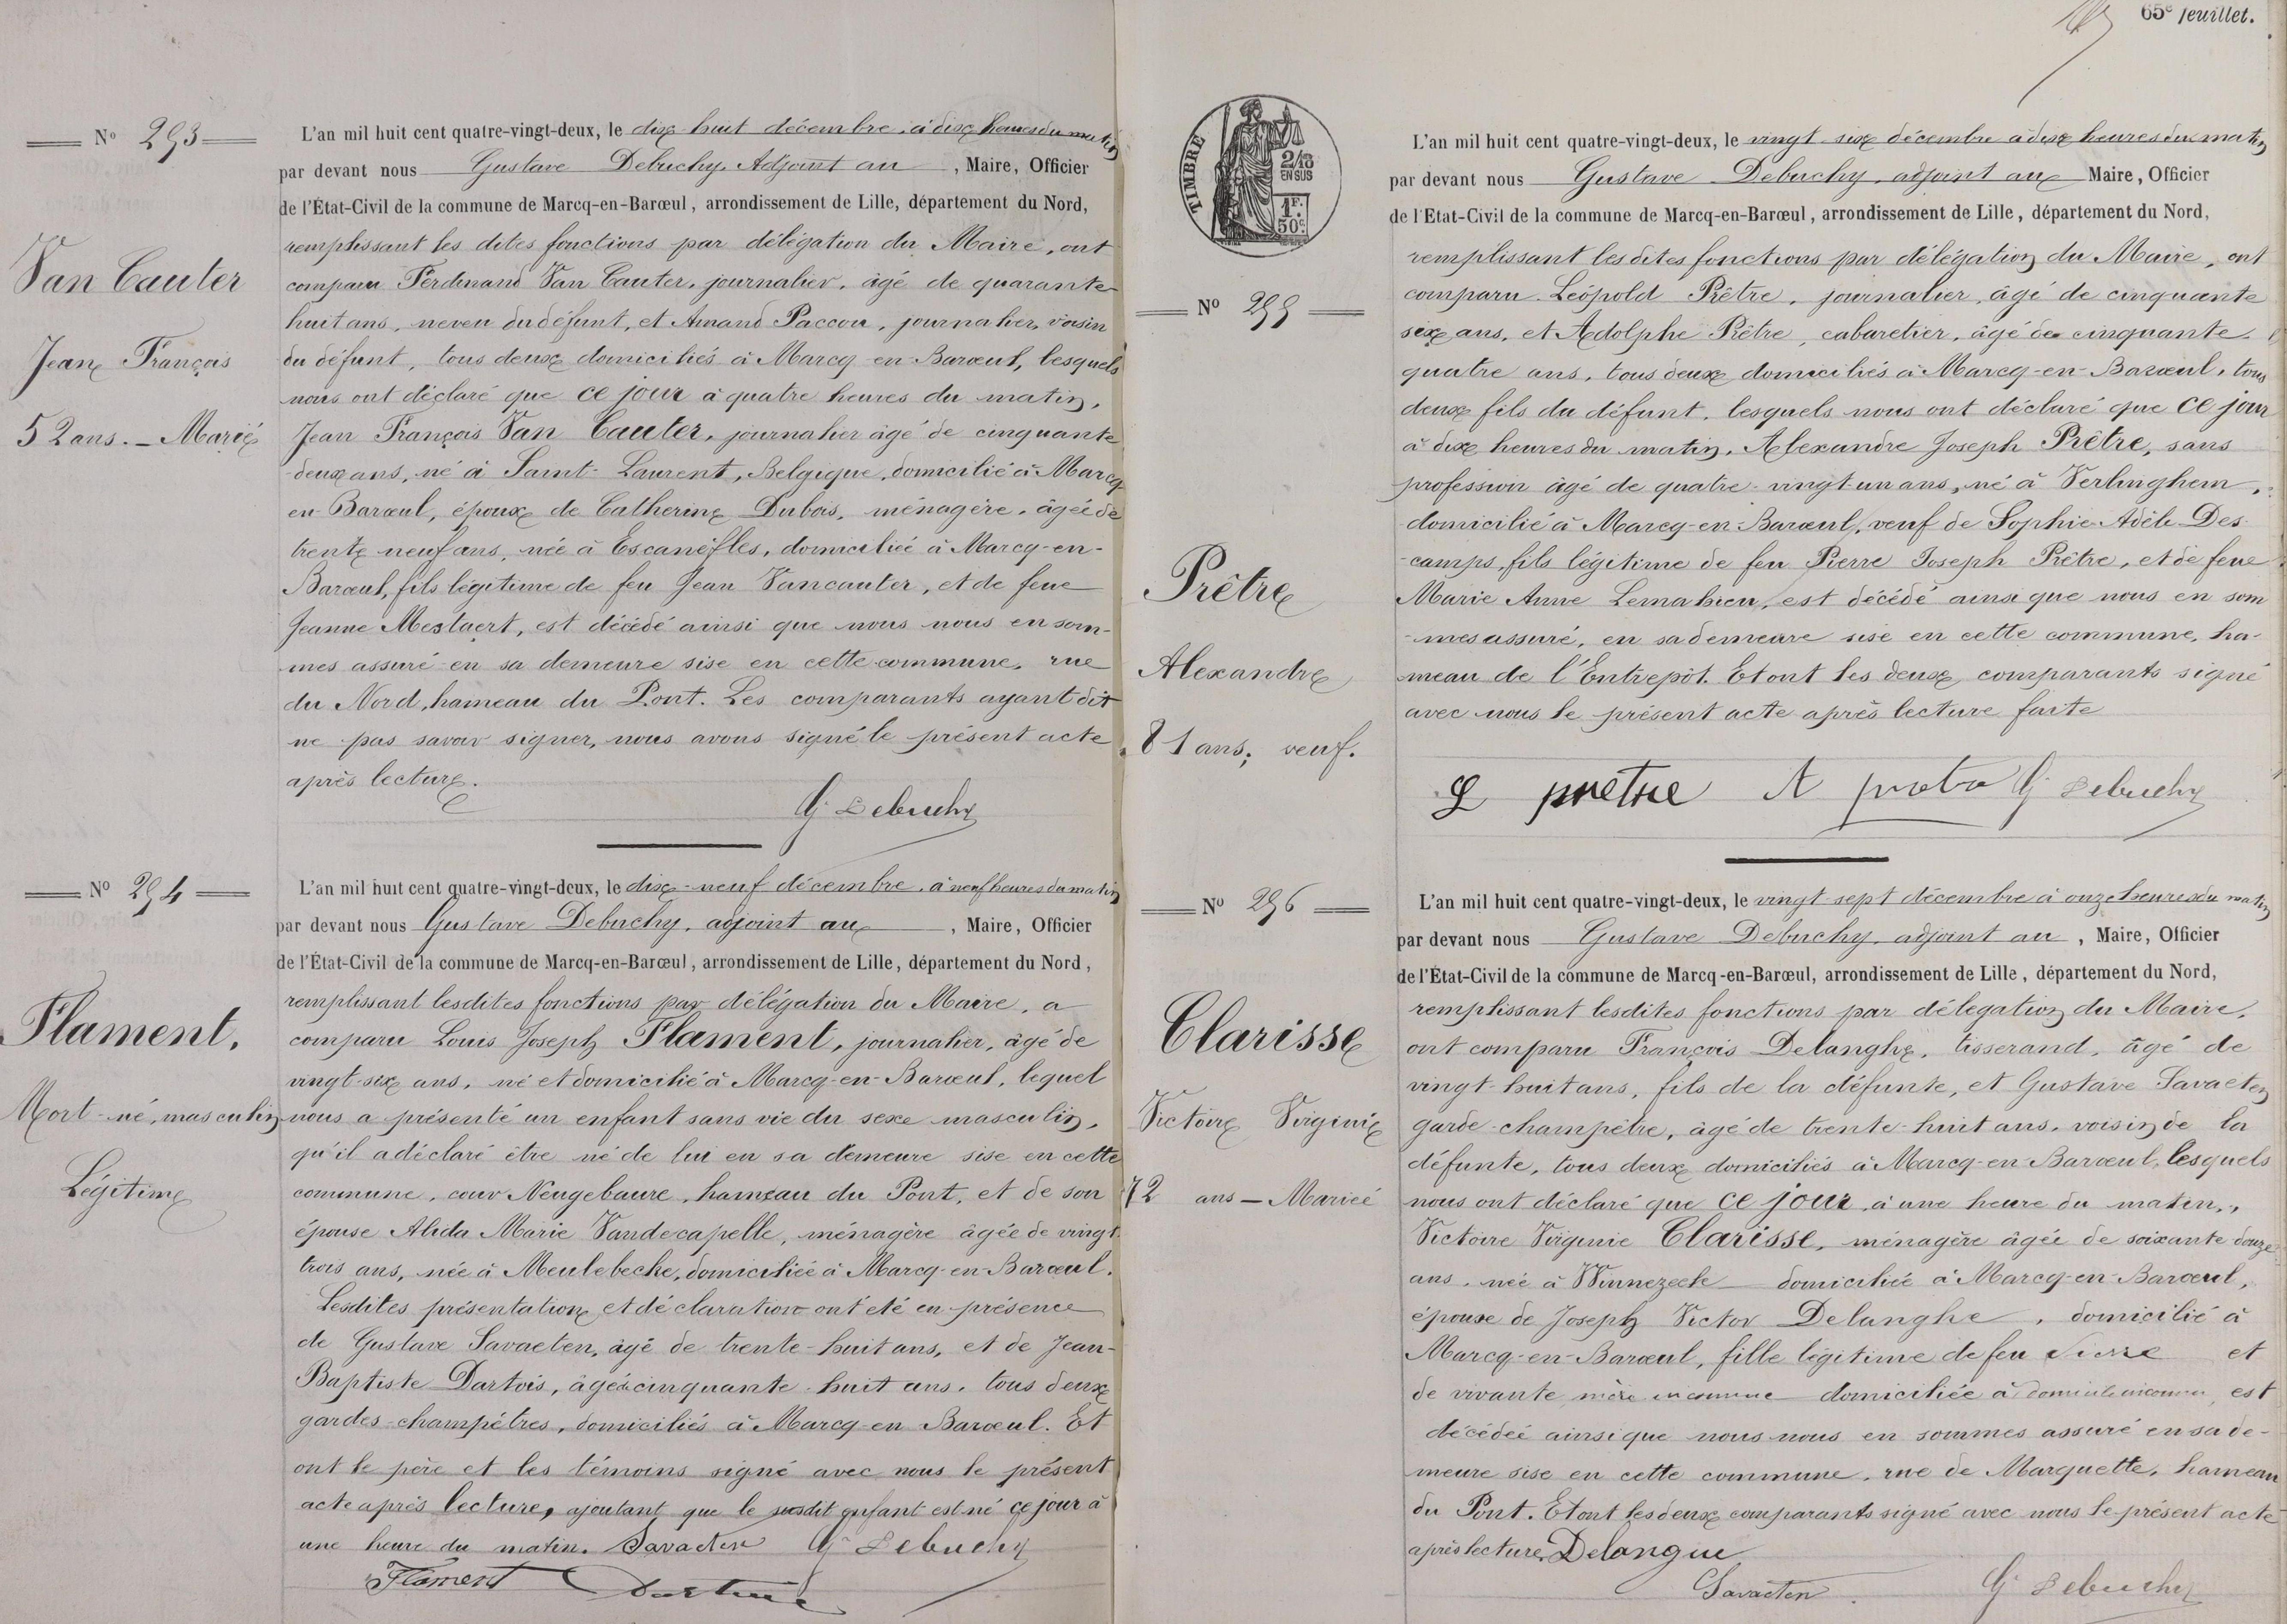 N° 293
Van Cauter
Jean François
52 ans. – Marié
L'an mil huit cent quatre-vingt-deux, le dix-huit décembre, à dix heures du matin
par devant nous Gustave Debuchy, Adjoint au , Maire, Officier
de l'État-Civil de la commune de Marcq-en-Barœul, arrondissement de Lille, département du Nord,
remplissant les dites fonctions par délégation du Maire, ont
comparu Ferdinand Van Cauter, journalier, âgé de quarante
huit ans, neveu du défunt, et Amand Paccou, journalier, voisin
du défunt, tous deux domiciliés à Marcq-en-Barœul, lesquels
nous ont déclaré que ce jour à quatre heures du matin,
Jean François Van Cauter, journalier âgé de cinquante
-deux ans, né à Saint-Laurent, Belgique, domicilié à Marcq
en-Barœul, époux de Catherine Dubois, ménagère, âgée de
trente-neuf ans, née à Escanèffles, domiciliée à Marcq-en-
Barœul, fils légitime de feu Jean Vancauter, et de feue
Jeanne Mestaert, est décédé ainsi que nous nous en som-
mes assuré en sa demeure sise en cette commune, rue
du Nord, hameau du Pont. Les comparants ayant dit
ne pas savoir signer, nous avons signé le présent acte
après lecture.
G Debuchy
N° 294
Flament,
Mort-né, masculin
Légitime
L'an mil huit cent quatre-vingt-deux, le dix-neuf décembre, à neuf heures du matin
par devant nous Gustave Debuchy, adjoint au , Maire, Officier
de l'État-Civil de la commune de Marcq-en-Barœul, arrondissement de Lille, département du Nord,
remplissant lesdites fonctions par délégation du Maire, a
comparu Louis Joseph Flament, journalier, âgé de
vingt-six ans, né et domicilié à Marcq-en-Barœul, lequel
nous a présenté un enfant sans vie du sexe masculin,
qu'il a déclaré être né de lui en sa demeure sise en cette
commune, cour Neugebaure, hameau du Pont, et de son
épouse Alida Marie Vandecapelle, ménagère âgée de vingt
trois ans, née à Meulebecke, domiciliée à Marcq-en-Barœul.
Lesdites présentation et déclaration ont été en présence
de Gustave Savaeten, âgé de trente-huit ans, et de Jean-
Baptiste Dartois, âgé de cinquante-huit ans, tous deux
gardes-champêtres, domiciliés à Marcq-en Barœul. Et
ont le père et les témoins signé avec nous le présent
acte après lecture, ajoutant que le susdit enfant est né ce jour à
une heure du matin. Savaeten G Debuchy
Flament Dartois
65e feuillet.
TIMBRE
2/10
EN SUS
1F.
50c.
N° 295
Prêtre
Alexandre
81 ans, veuf.
L'an mil huit cent quatre-vingt-deux, le vingt-six décembre à dix heures du matin
par devant nous Gustave Debuchy, adjoint au Maire, Officier
de l'Etat-Civil de la commune de Marcq-en-Barœul, arrondissement de Lille, département du Nord,
remplissant lesdites fonctions par délégation du Maire, ont
comparu Léopold Prêtre, journalier, âgé de cinquante
six ans, et Adolphe Prêtre, cabaretier, âgé de cinquante
quatre ans, tous deux domiciliés à Marcq-en-Barœul, tous
deux fils du défunt, lesquels nous ont déclaré que ce jour
à dix heures du matin, Alexandre Joseph Prêtre, sans
profession âgé de quatre-vingt-un ans, né à Verlinghem,
domicilié à Marcq-en-Barœul, veuf de Sophie Adèle Des
-camps, fils légitime de feu Pierre Joseph Prêtre, et de feue
Marie Anne Lemahieu, est décédé ainsi que nous en som
-mes assuré, en sa demeure sise en cette commune, ha-
meau de l'Entrepôt. Et ont les deux comparants signé
avec nous le présent acte après lecture faite
L pretre A pretre G Debuchy
N° 296
Clarisse
Victoire Virginie
72 ans – Mariée
L'an mil huit cent quatre-vingt-deux, le vingt-sept décembre à onze heures du matin
par devant nous Gustave Debuchy, adjoint au , Maire, Officier
de l'État-Civil de la commune de Marcq-en-Barœul, arrondissement de Lille, département du Nord,
remplissant lesdites fonctions par délegation du Maire,
ont comparu François Delanghe, tisserand, âgé de
vingt-huit ans, fils de la défunte, et Gustave Savaeten
garde-champêtre, âgé de trente-huit ans, voisin de la
défunte, tous deux domiciliés à Marcq-en-Barœul, lesquels
nous ont déclaré que ce jour, à une heure du matin,
Victoire Virginie Clarisse, ménagère âgée de soixante-douze
ans, née à Winnezeele domiciliée à Marcq-en-Barœul,
épouse de Joseph Victor Delanghe, domicilié à
Marcq-en-Barœul, fille légitime de feu Pierre et
de vivante mère inconnue domiciliée à domicile inconnu, est
décédée ainsi que nous nous en sommes assuré en sa de-
meure sise en cette commune, rue de Marquette, hameau
du Pont. Et ont les deux comparants signé avec nous le présent acte
après lecture. Delangue
Savaeten G Debuchy